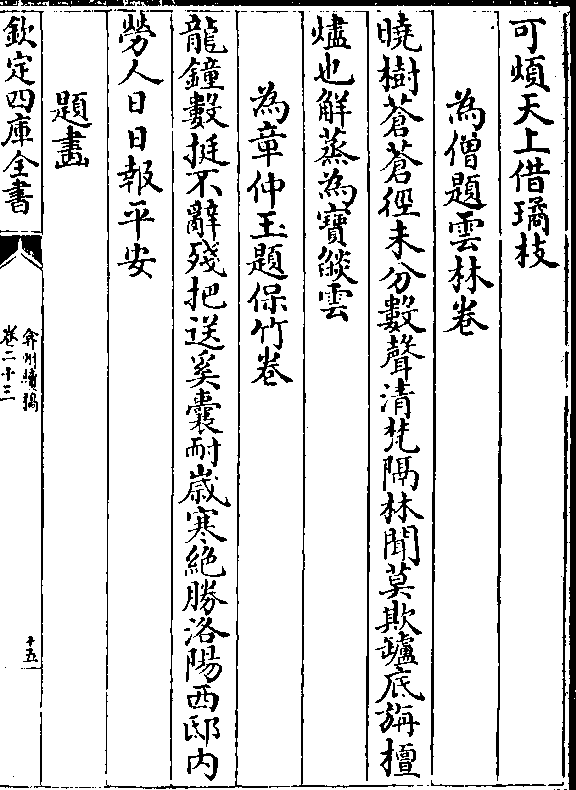 可煩天上借璚枝
為僧題雲林卷
曉樹蒼蒼徑未分數聲清梵隔林聞莫欺罏底旃檀
燼也解蒸為寶燄雲
為章仲玉題保竹卷
龍鐘數挺不辭殘把送奚囊耐歲寒絶勝洛陽西邸内
勞人日日報平安
題畫
欽定四庫全書
弇州續稿
卷二十三
十五